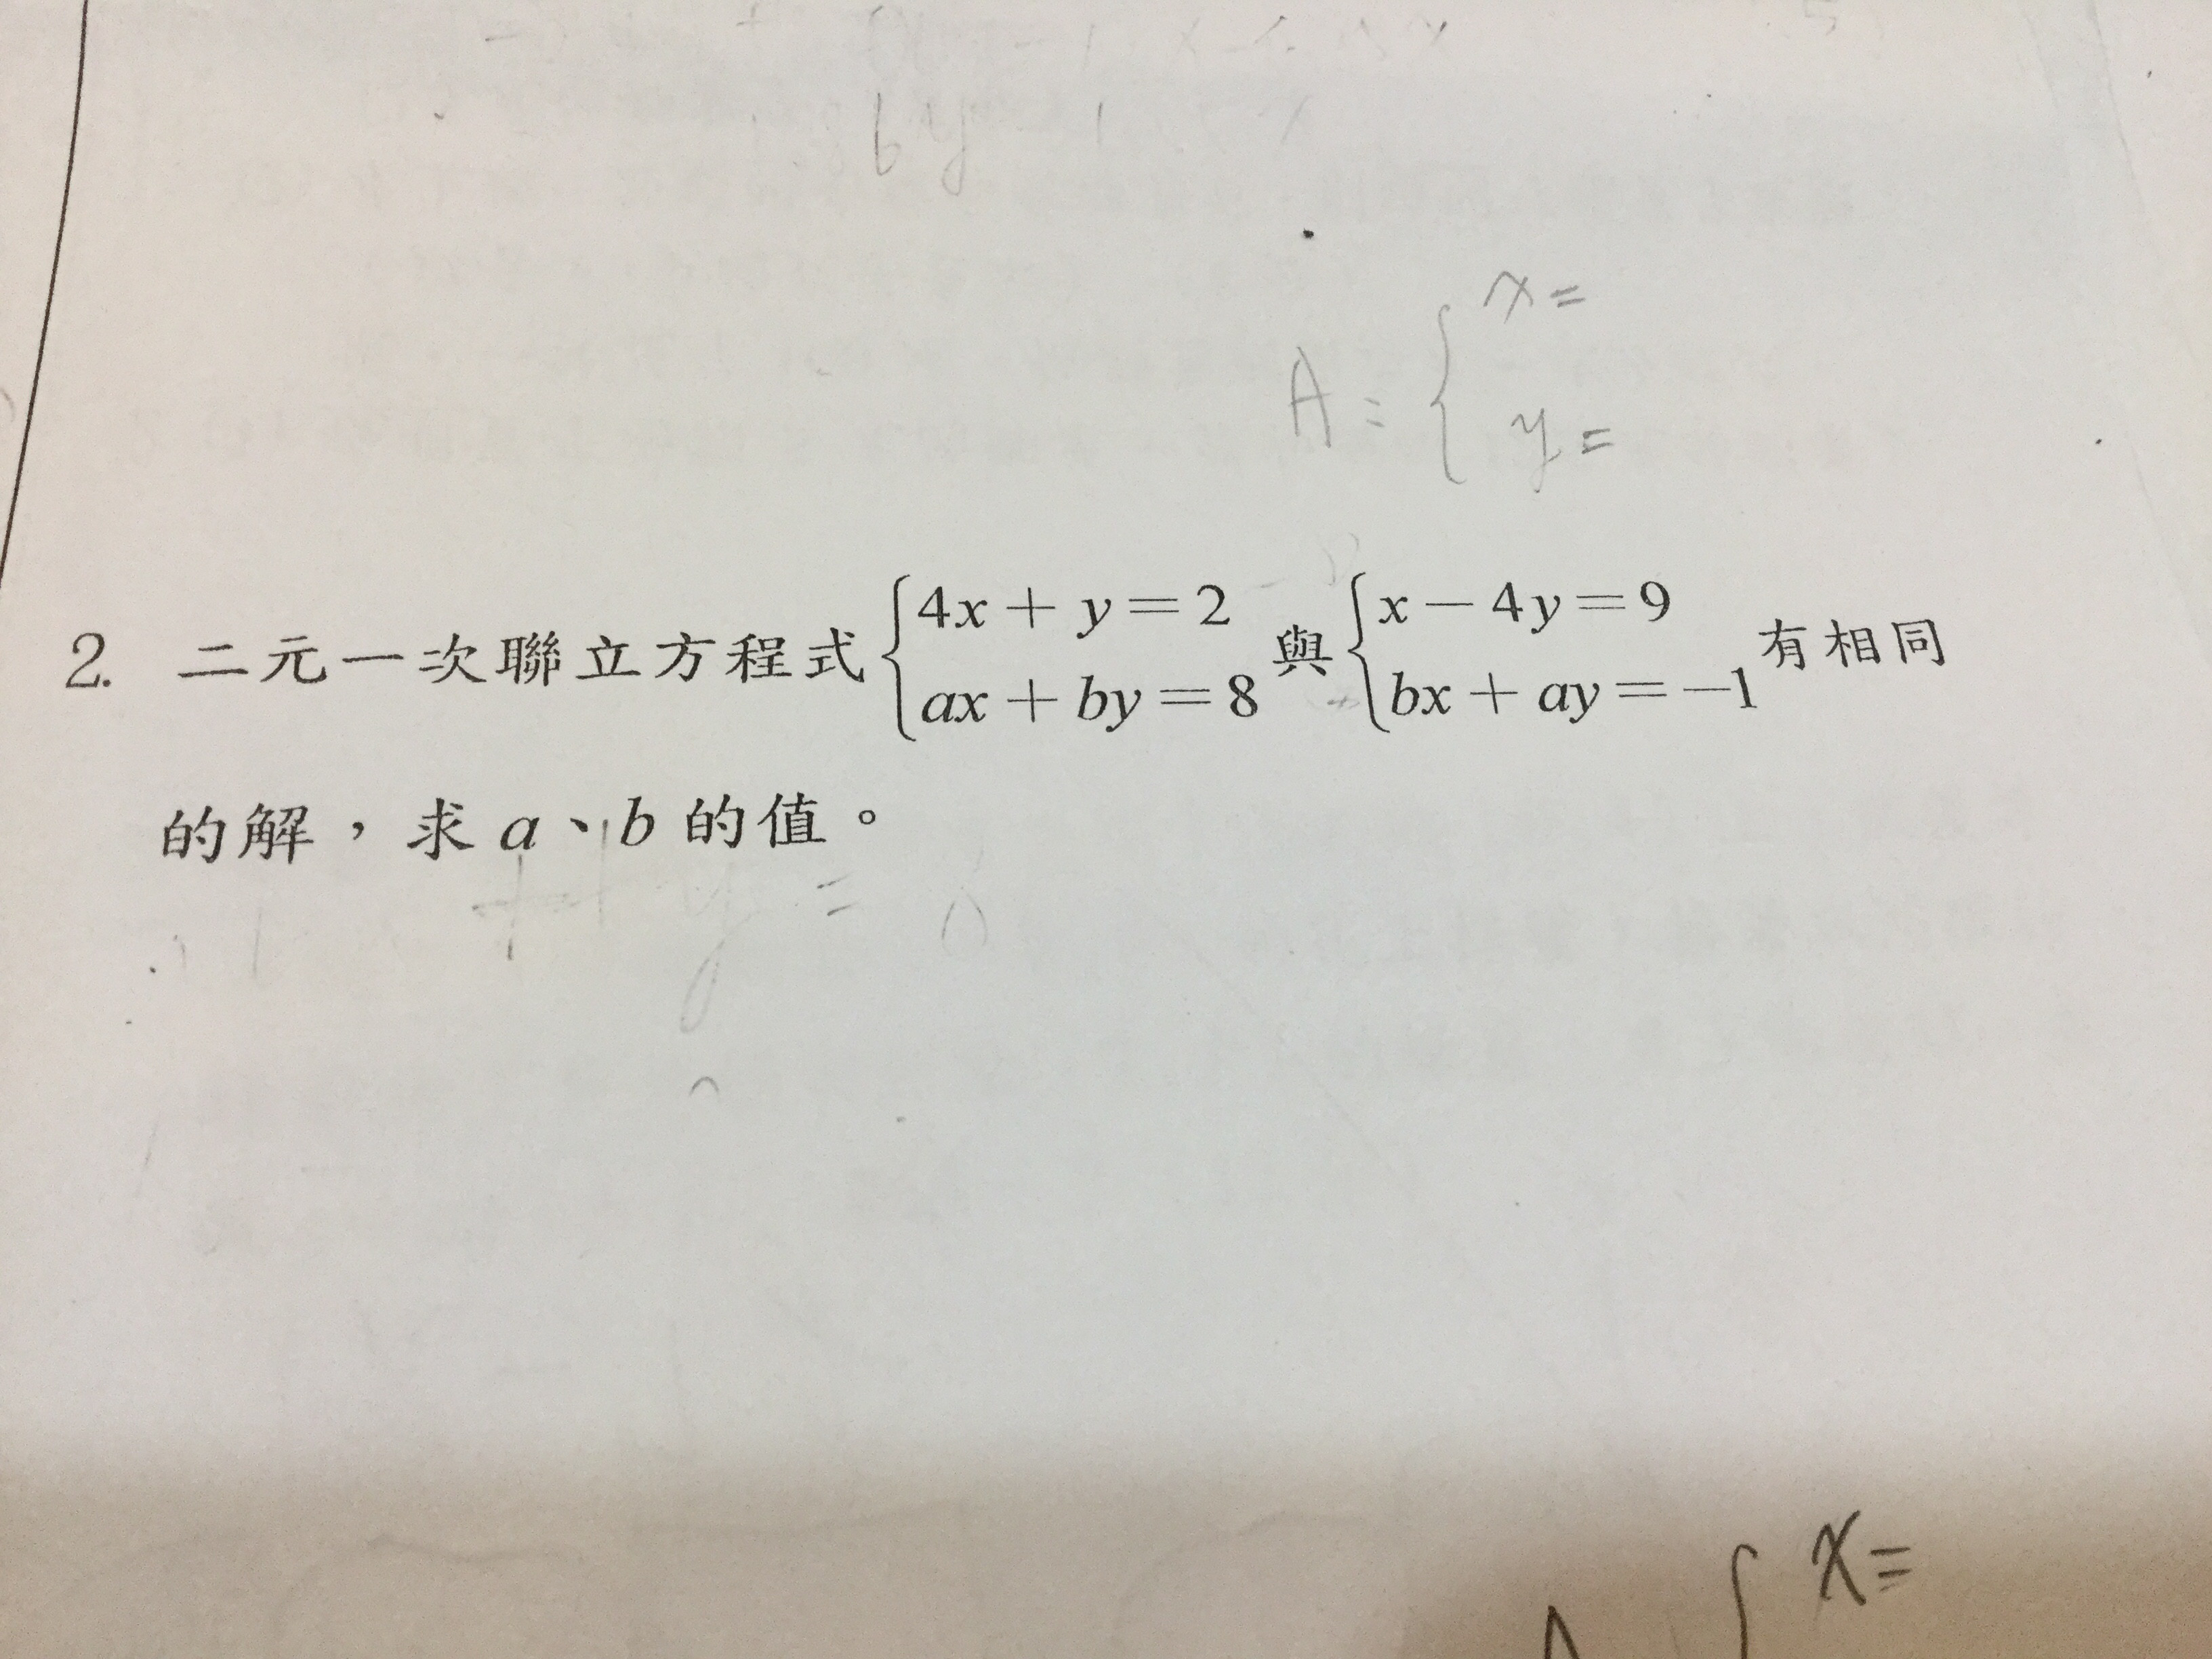 by
x =
A =
y =
2. 二元一次聯立方程式{4x + y = 2 ax + by = 8 與{x − 4y = 9 bx + ay = −1 有相同
的解，求 a、b 的值。
y =
x =